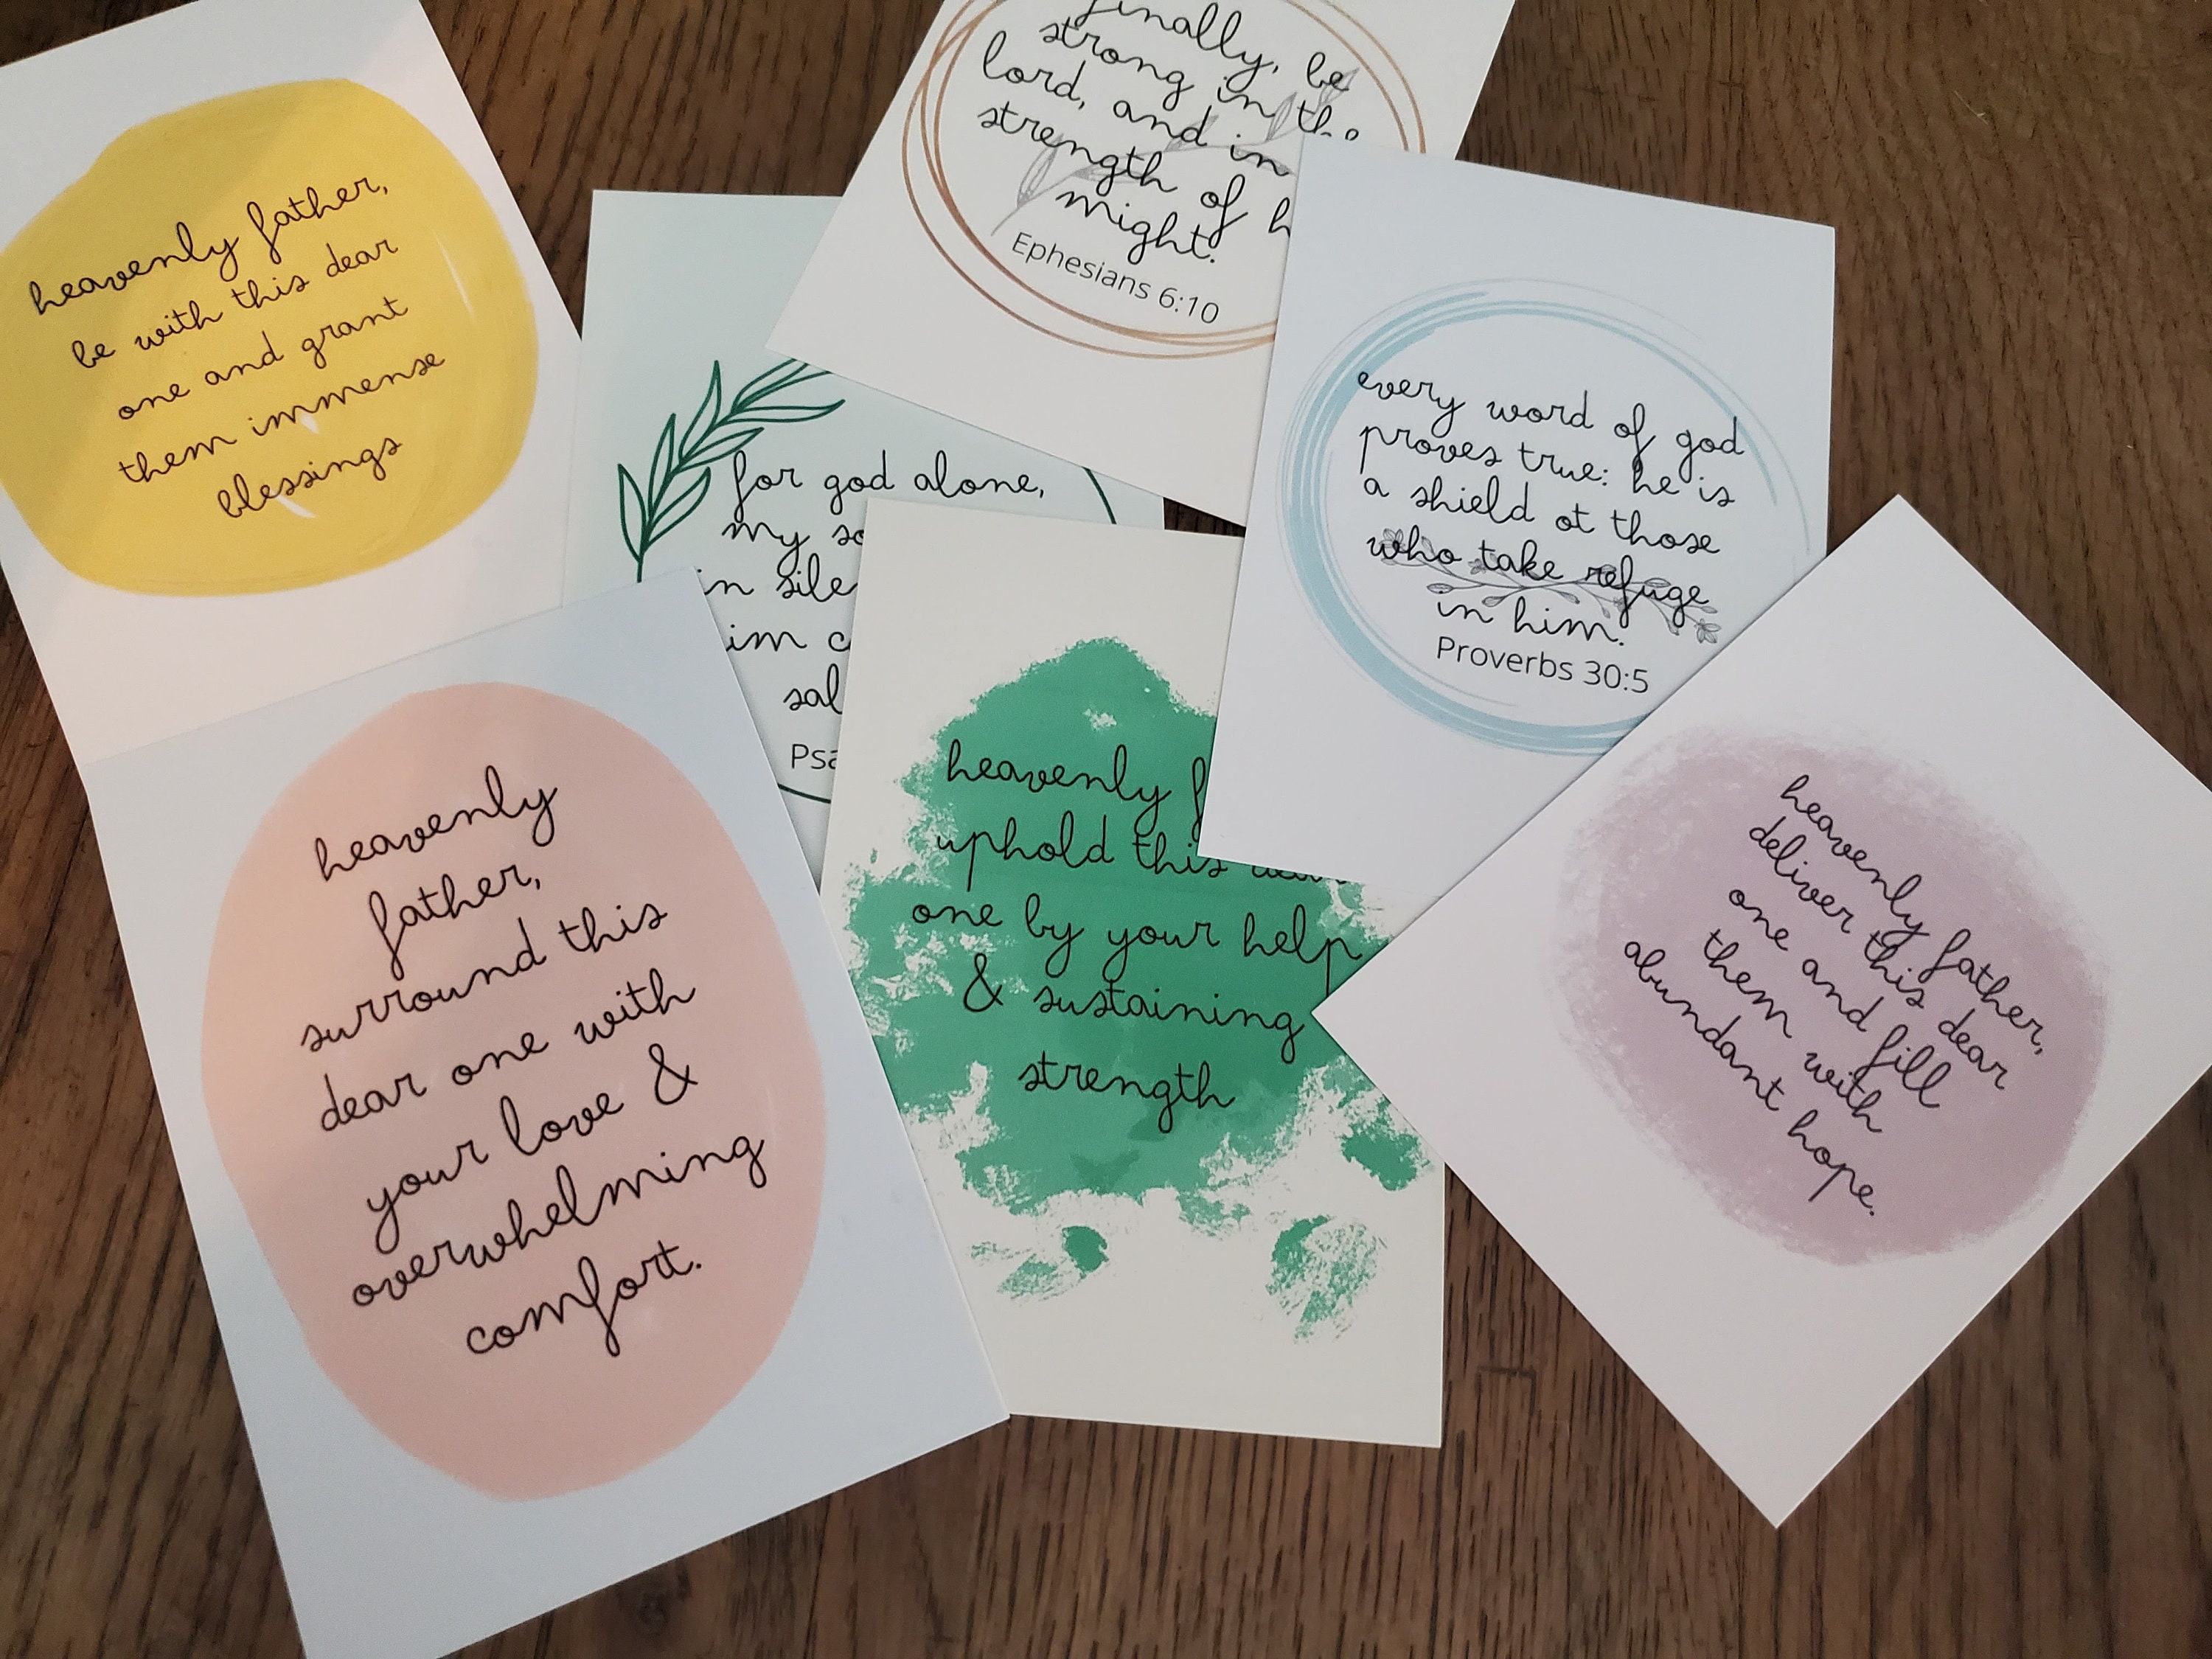 heavenly father,
be with this dear
one and grant
them immense
blessings
finally, be
strong in the
lord, and in
strength of
might.
Ephesians 6:10
for god alone,
my
in
salvation
every word of god
proves true: he is
a shield ot those
who take refuge
in him.
Proverbs 30:5
heavenly
father,
surround this
dear one with
your love &
overwhelming
comfort.
heavenly
uphold this dear
one by your help
& sustaining
strength
heavenly father,
deliver this dear
one and fill
them with
abundant hope.